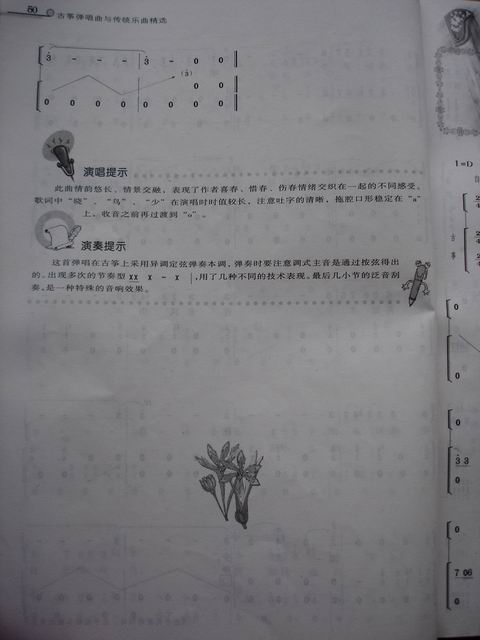 50 古筝弹唱曲与传统乐曲精选
3 - - - 3 - 0 0
(3)
0 0
0 0 0 0 0 0 0 0
演唱提示
此曲情韵悠长、情景交融,表现了作者喜春、惜春、伤春情绪交织在一起的不同感受。
歌词中“晓”、“鸟”、“少”在演唱时时值较长,注意吐字的清晰,拖腔口形稳定在“a”
上,收音之前再过渡到“o”。
演奏提示
这首弹唱在古筝上采用异调定弦弹奏本调,弹奏时要注意调式主音是通过按弦得出
的。出现多次的节奏型 xx x - x |,用了几种不同的技术表现。最后几小节的泛音刮
奏,是一种特殊的音响效果。
1=D
古
筝
0
0
0
3 3
0
0
7 06
0